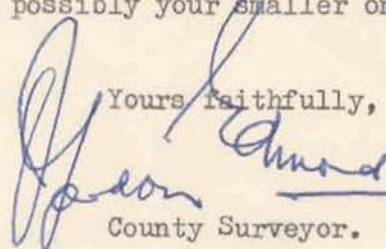 possibly your smaller on
Yours faithfully,
Gordon Edmond
County Surveyor.